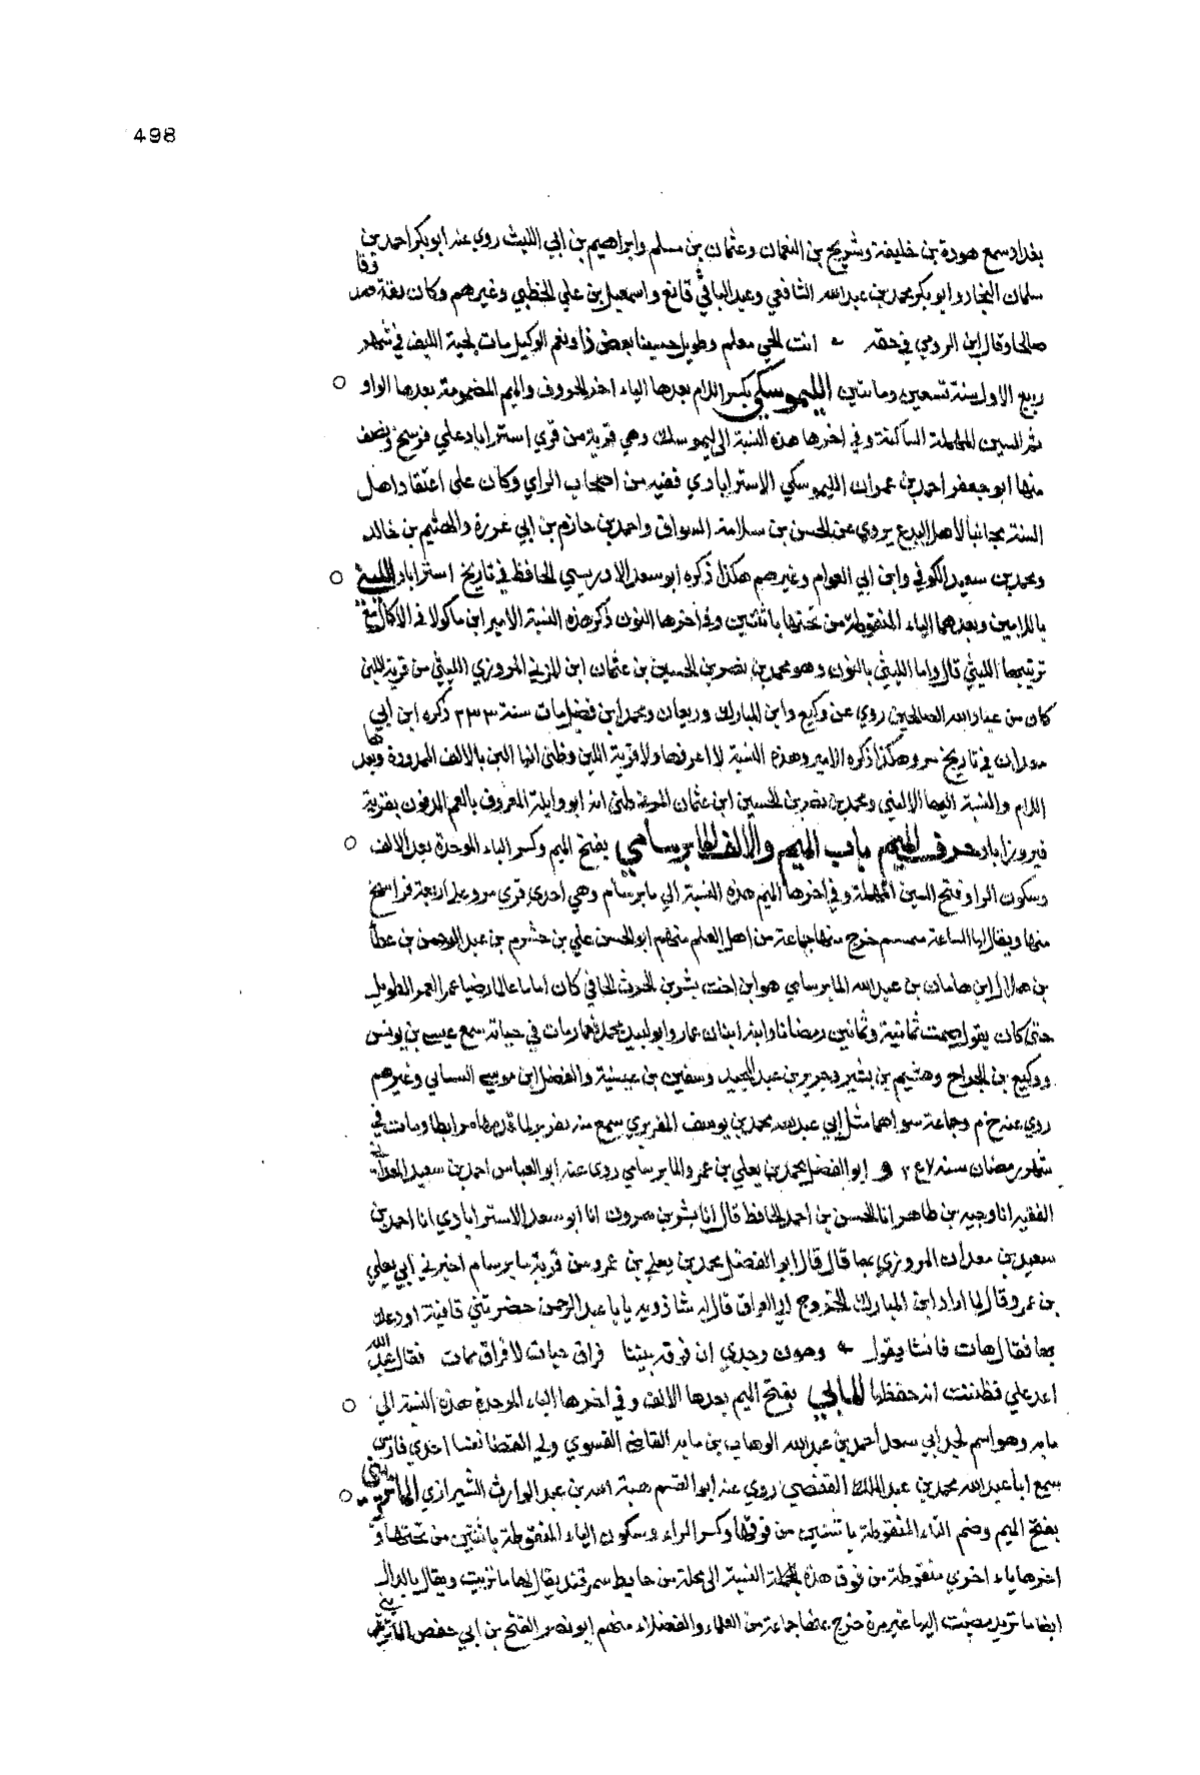 498
بغداد سمع هودة بن خليفة وشريح بن النعمان وعثمان بن مسلم وابراهيم بن ابي الليث روي عنه ابو بكر احمد بن
سلمان النجاد وابو بكر محمد بن عبدالله الشافعي وعبد الباقي قانع واسمعيل بن علي الخطبي وغيرهم وكان ثقة
صالحا وقال ابن الرومي في حقه انت الحي معلم وطويل حسبنا بعض ذا ونعم الوكيل مات لحية الليف في شهر
ربيع الاول سنة تسعين وماىتين الليموسكي بكسر اللام بعدها الياء اخر الحروف والميم المضمومة بعدها الواو
ثم السين المهملة الساكنة وفي اخرها هذه النسبة الى ليموسك وهي قرية من قري استراباد علي فرسخ ونصف
منها ابو جعفر احمد بن عمران الليموسكي الاسترابادي فقيه من اصحاب الراي وكان على اعتقاد اهل
السنة مجانبا لاهل البدع يروي عن الحسن بن سلامة السواق واحمد بن حازم بن ابي غرزة والهيثم بن خالد
ومحمد بن سعيد الكوفي وابن ابي العوام وغيرهم هكذا ذكره ابو سعد الادريسي الحافظ في تاريخ استراباد الليني
باللامين وبعدهما الياء المنقوطة من تحتها باثنتين وفي اخرها النون ذكر هذه النسبة الامير ابن ماكولا في الاكمال
قال واما الليني بالنون وهو محمد بن نصر بن الحسين بن عثمان ابن المزني المروزي الليني من قرية اللين
كان من عباد الله الصالحين روي عن وكيع وابن المبارك وريحان ومحمد ابن فضيل مات سنة ٢٣٣ ذكره ابن ابي
معدان في تاريخ مرو هكذا ذكره الامير وهذه النسبة لا اعرفها ولا قرية اللين وظني انها البن بالالف الممدودة وبعدها
اللام والنسبة اليها الاليني ومحمد بن نصر بن الحسين ابن عثمان المزني ظني انه ابو وايلة المعروف بالعم المدفون بقرية
فيروزاباد حرف الميم باب الميم والالف المابرسامي بفتح الميم وكسر الباء الموحدة بعد الالف
وسكون الرا وفتح السين المهملة وفي اخرها الميم هذه النسبة الي مابرسام وهي احدي قري مرو على اربعة فراسخ
منها ويقال لها الساعة ميمسم خرج منها جماعة من اهل العلم منهم ابو الحسن علي بن خشرم بن عبد الرحمن بن عطا
بن هلال ابن هامان بن عبد الله المابرسامي هو ابن اخت بشر بن الحرث الحافي كان اماما عالما رضيا عمر العمر الطويل
حتى كان يقول صمت ثمانية وثمانين رمضانا وابنه ابنان عمار وابو لبيد محمد فعمار مات في حياته سمع عيسى بن يونس
ووكيع بن الجراح وهشيم بن بشير وجرير بن عبد الحميد وسفين بن عيينة والفضل ابن موسى السيناني وغيرهم
روي عنه خ م وجماعة سواهما مثل ابي عبد الله محمد بن يوسف الفربري سمع منه بفربر لما قدمها مرابطا ومات في
شهر رمضان سنة ٢٤٧ وابو الفضل محمد بن يعلي بن عمرو المابرسامي روي عنه ابو العباس احمد بن سعيد المعداني
الفقيه انا وجيه بن طاهر انا الحسن بن احمد الحافظ قال انا بشر بن هرون انا ابو سعد الاسترابادي انا احمد بن
سعيد بن معدان المروزي بها قال قال ابو الفضل محمد بن يعلي بن عمرو من قرية مابرسام اخبرني ابي يعلي
بن عمرو قال لما اراد ابن المبارك الخروج الي العراق قال له شاذويه يا با عبد الرحمن حضرتني قافية اودعك
بها فقال هات فانشا يقول وهون وجدي ان فرقة بيننا فراق حيات لا فراق ممات فقال عبد الله
اعد علي فظننت انه حفظها المابي بفتح الميم بعدها الالف وفي اخرها الباء الموحدة هذه النسبة الي
مابه وهو اسم لجد ابي سعد احمد بن عبد الله الوهاب بن مابه القاضي الفسوي ولي القضا
سمع ابا عبد الله محمد بن عبد الملك القفصي روي عنه ابو القسم هبة الله بن عبد الوارث الشيرازي الماتريتي
بفتح الميم وضم التاء المنقوطة باثنتين من فوقها وكسر الراء وسكون الياء المنقوطة باثنتين من تحتها و
اخرها ياء اخري منقوطة من فوق هذه الجملة النسبة الى محلة من حايط سمرقند يقال لها ماتريت ويقال بالدال
ايضا ماتريد مضيت اليها غير مرة خرج منها جماعة من العلماء والفضلاء منهم ابو نصر الفتح بن ابي حفص الماتريتي